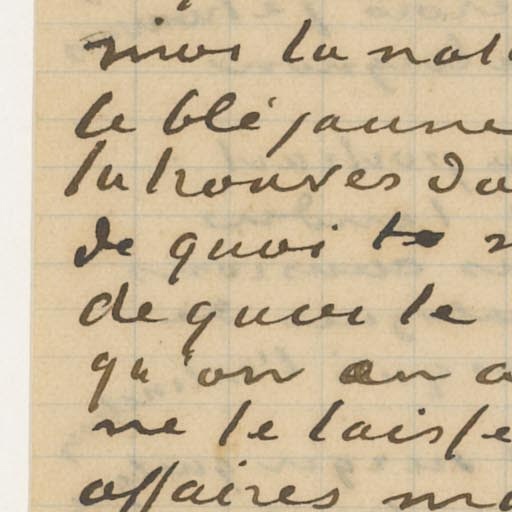 mier la nat
le blé jaune
tu trouves da
de quoi te
de quoi te
qu'on en a
ne te laisse
affaires ma